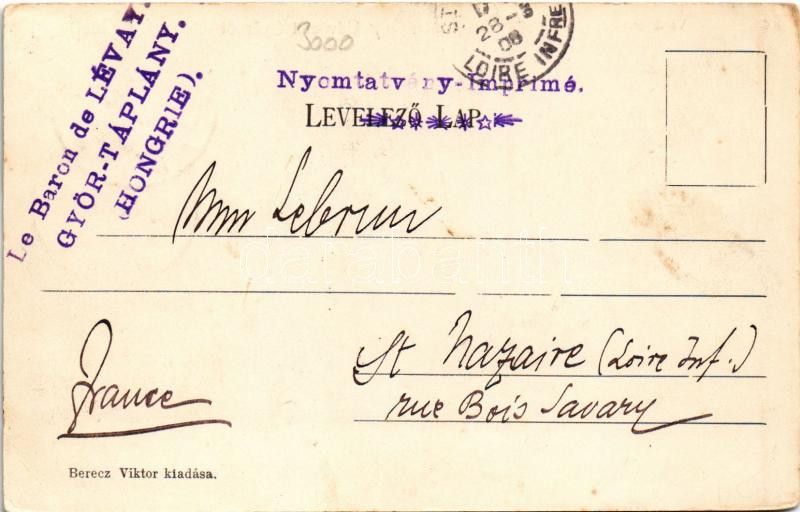 Le Baron de LÉVAY.
GYÖR-TÁPLÁNY.
(HONGRIE).
3000
28
08
LOIRE INFRE
Nyomtatvány-Imprimé.
LEVELEZŐ LAP
Lebrun
St Nazaire (Loire Inf.)
rue Bois Savary
France
Berecz Viktor kiadása.